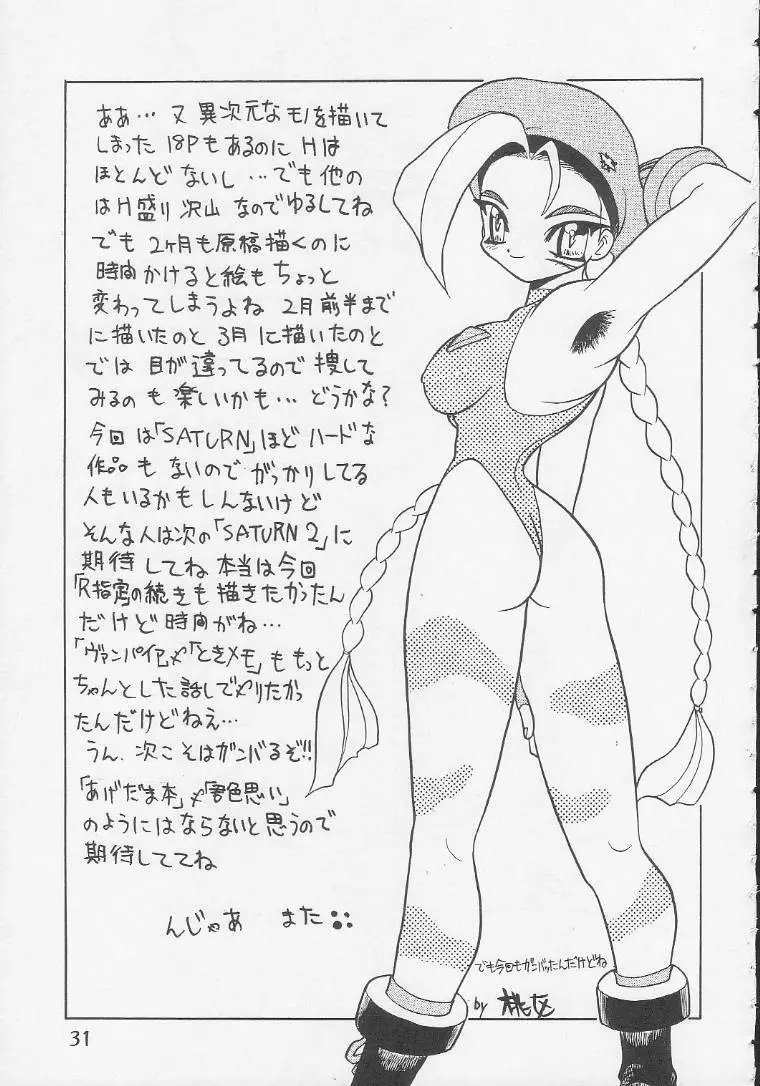 ああ… 又 異次元な モノを描いて
しまった 18Pもあるのに Hは
ほとんど ないし …でも他の
はH盛り沢山 なのでゆるしてね
でも 2ヶ月も原稿描くのに
時間かけると絵もちょっと
変わってしまうよね 2月前半まで
に描いたのと 3月に描いたのと
では 目が違ってるので捜して
みるの も 楽しいかも… どうかな?
今回は「SATURN」ほど ハードな
作品も ないので がっかりしてる
人もいるかもしんないけど
そんな人は次の「SATURN 2」に
期待 してね 本当は今回
「R指定」の続きも描きたかったん
だけど時間がね…
「ヴァンパイア」や「ときメモ」ももっと
ちゃんとした話しでやりたかっ
たんだけどねえ…
うん、次こそはガンバるぞ!!
「あげだま本」や「君色思い」
のようにはならないと思うので
期待しててね
んじゃあ また
でも今回もガンバったんだけどね
by
31